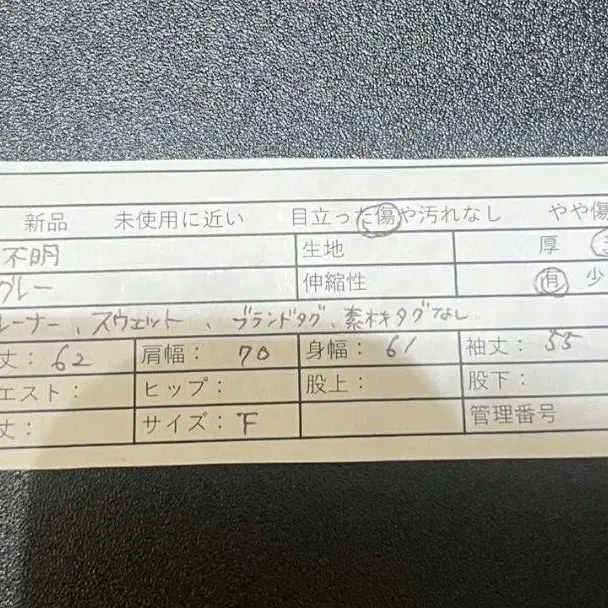 新品 未使用に近い 目立った傷や汚れなし やや傷
不明 生地 厚
グレー 伸縮性 有 少
レーナー、スウェット、ブランドタグ、素材タグなし
丈：62 肩幅：70 身幅：61 袖丈：55
エスト： ヒップ： 股上： 股下：
丈： サイズ：F 管理番号